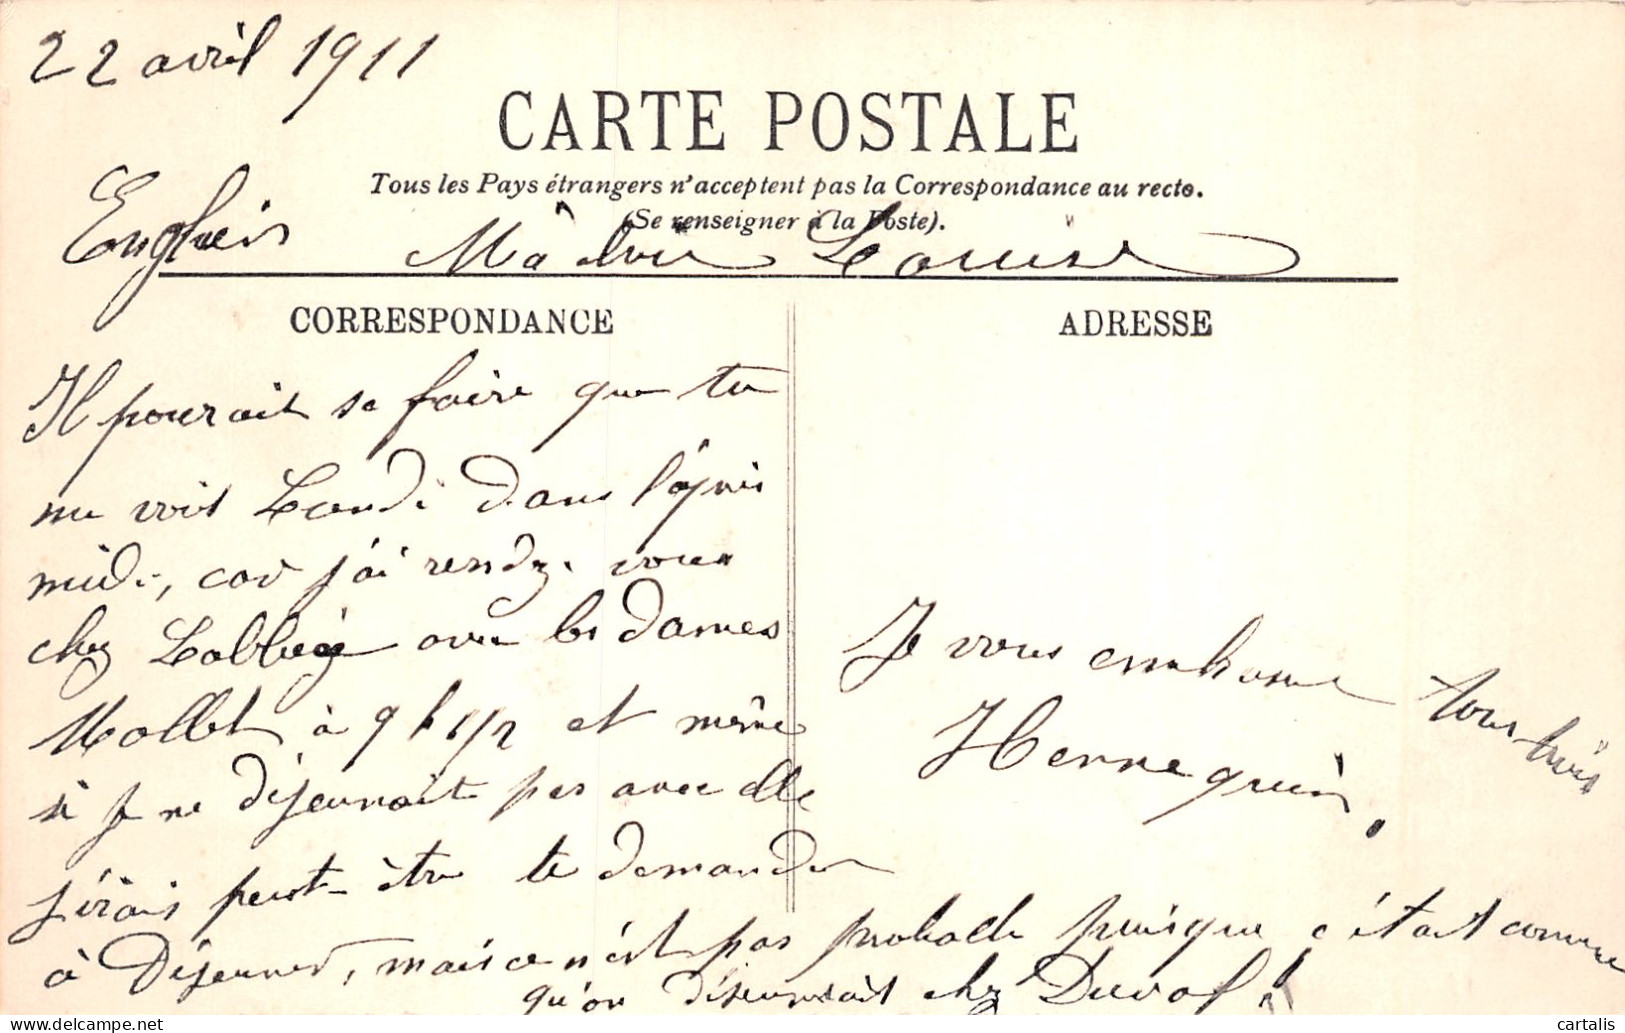 22 avril 1911
CARTE POSTALE
Tous les Pays étrangers n'acceptent pas la Correspondance au recto.
(Se renseigner à la Poste).
Enghein
Ma Louise
CORRESPONDANCE
ADRESSE
Il pourait se faire que tu
me vois Lundi dans l'après
midi, car j'ai rendez-vous
chez avec les dames
Mollet à 9 h 1/2 et même
si je ne déjeunait pas avec elle
j'irais peut-être te demander
à Déjeuner, mais ce n'est pas probable puisque c'était convenu
qu'on déjeunerait chez Duval!
Je vous embrasse tous trois
Hennequin.
cartalis